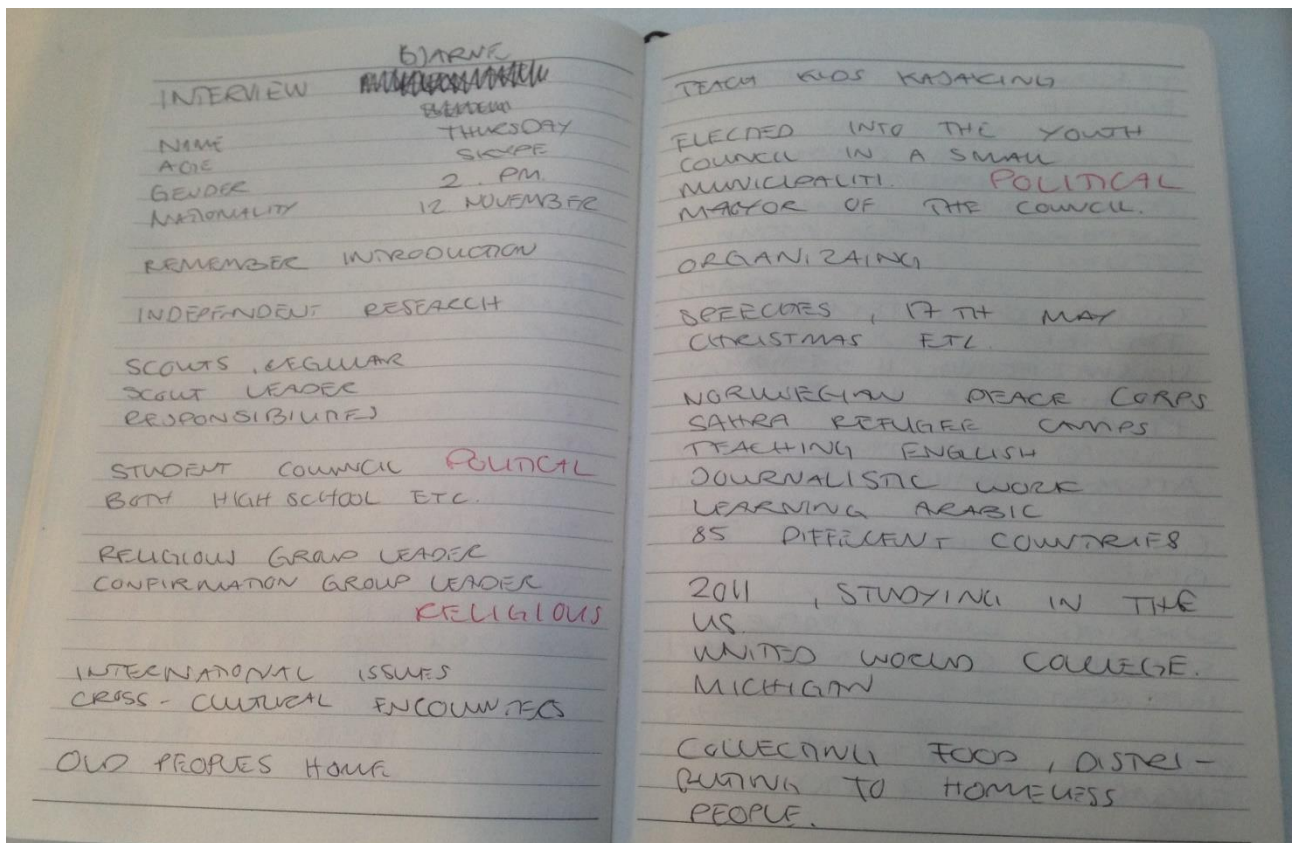 BJARNE
INTERVIEW
NAME THURSDAY
AGE SKYPE
GENDER 2. PM
NATIONALITY 12 NOVEMBER
REMEMBER INTRODUCTION
INDEPENDENT RESEARCH
SCOUTS, REGULAR
SCOUT LEADER
RESPONSIBILITIES
STUDENT COUNCIL POLITICAL
BOTH HIGH SCHOOL ETC.
RELIGIOUS GROUP LEADER
CONFIRMATION GROUP LEADER
RELIGIOUS
INTERNATIONAL ISSUES
CROSS-CULTURAL ENCOUNTERS
OLD PEOPLES HOME
TEACH KIDS KAJAKING
ELECTED INTO THE YOUTH
COUNCIL IN A SMALL
MUNICIPALITI. POLITICAL
MAYOR OF THE COUNCIL.
ORGANIZAING
SPEECHES, 17 TH MAY
CHRISTMAS ETC.
NORWEGIAN PEACE CORPS
SAHRA REFUGEE CAMPS
TEACHING ENGLISH
JOURNALISTIC WORK
LEARNING ARABIC
85 DIFFERENT COUNTRIES
2011, STUDYING IN THE
US.
UNITED WORLD COLLEGE.
MICHIGAN
COLLECTING FOOD, DISTRI-
BUTING TO HOMELESS
PEOPLE.